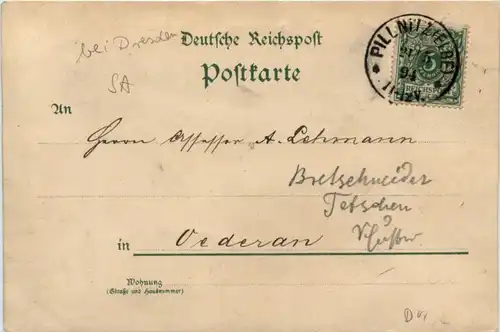 bei Dresden
SA
Deutsche Reichspost
Postkarte
PILLNITZ (ELBE)
94
5
REICHSP
An
Herrn Assessor A. Lehmann
Bretschneider
Tetschen
in Oederan
Wohnung
(Straße und Hausnummer)